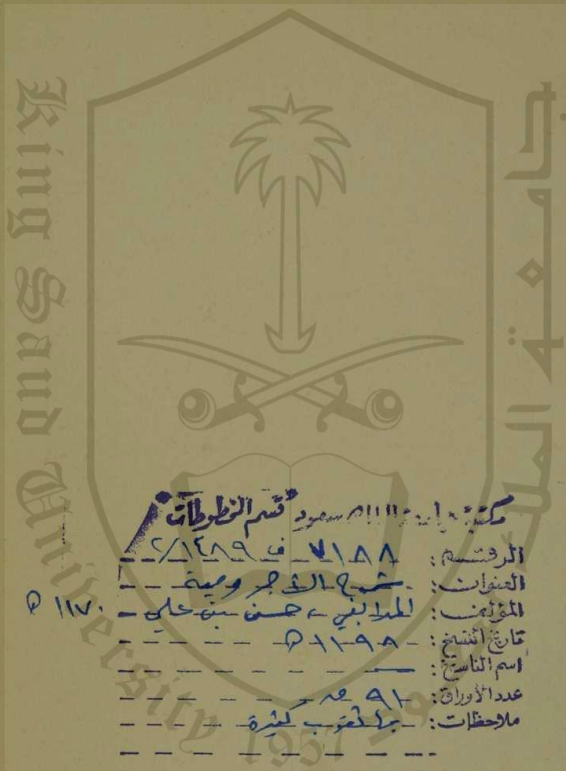 King Saud University
1957
مكتبة جامعة الملك سعود قسم المخطوطات
الرقم: ٧١٨٨ ف ١٤٨٩/٢
العنوان: شرح الآجرومية
المؤلف: المدابغي، حسن بن علي - ١١٧٠ هـ
تاريخ النسخ: ١١٩٨ هـ
اسم الناسخ:
عدد الأوراق: ٩١
ملاحظات: بها ثقوب كثيرة